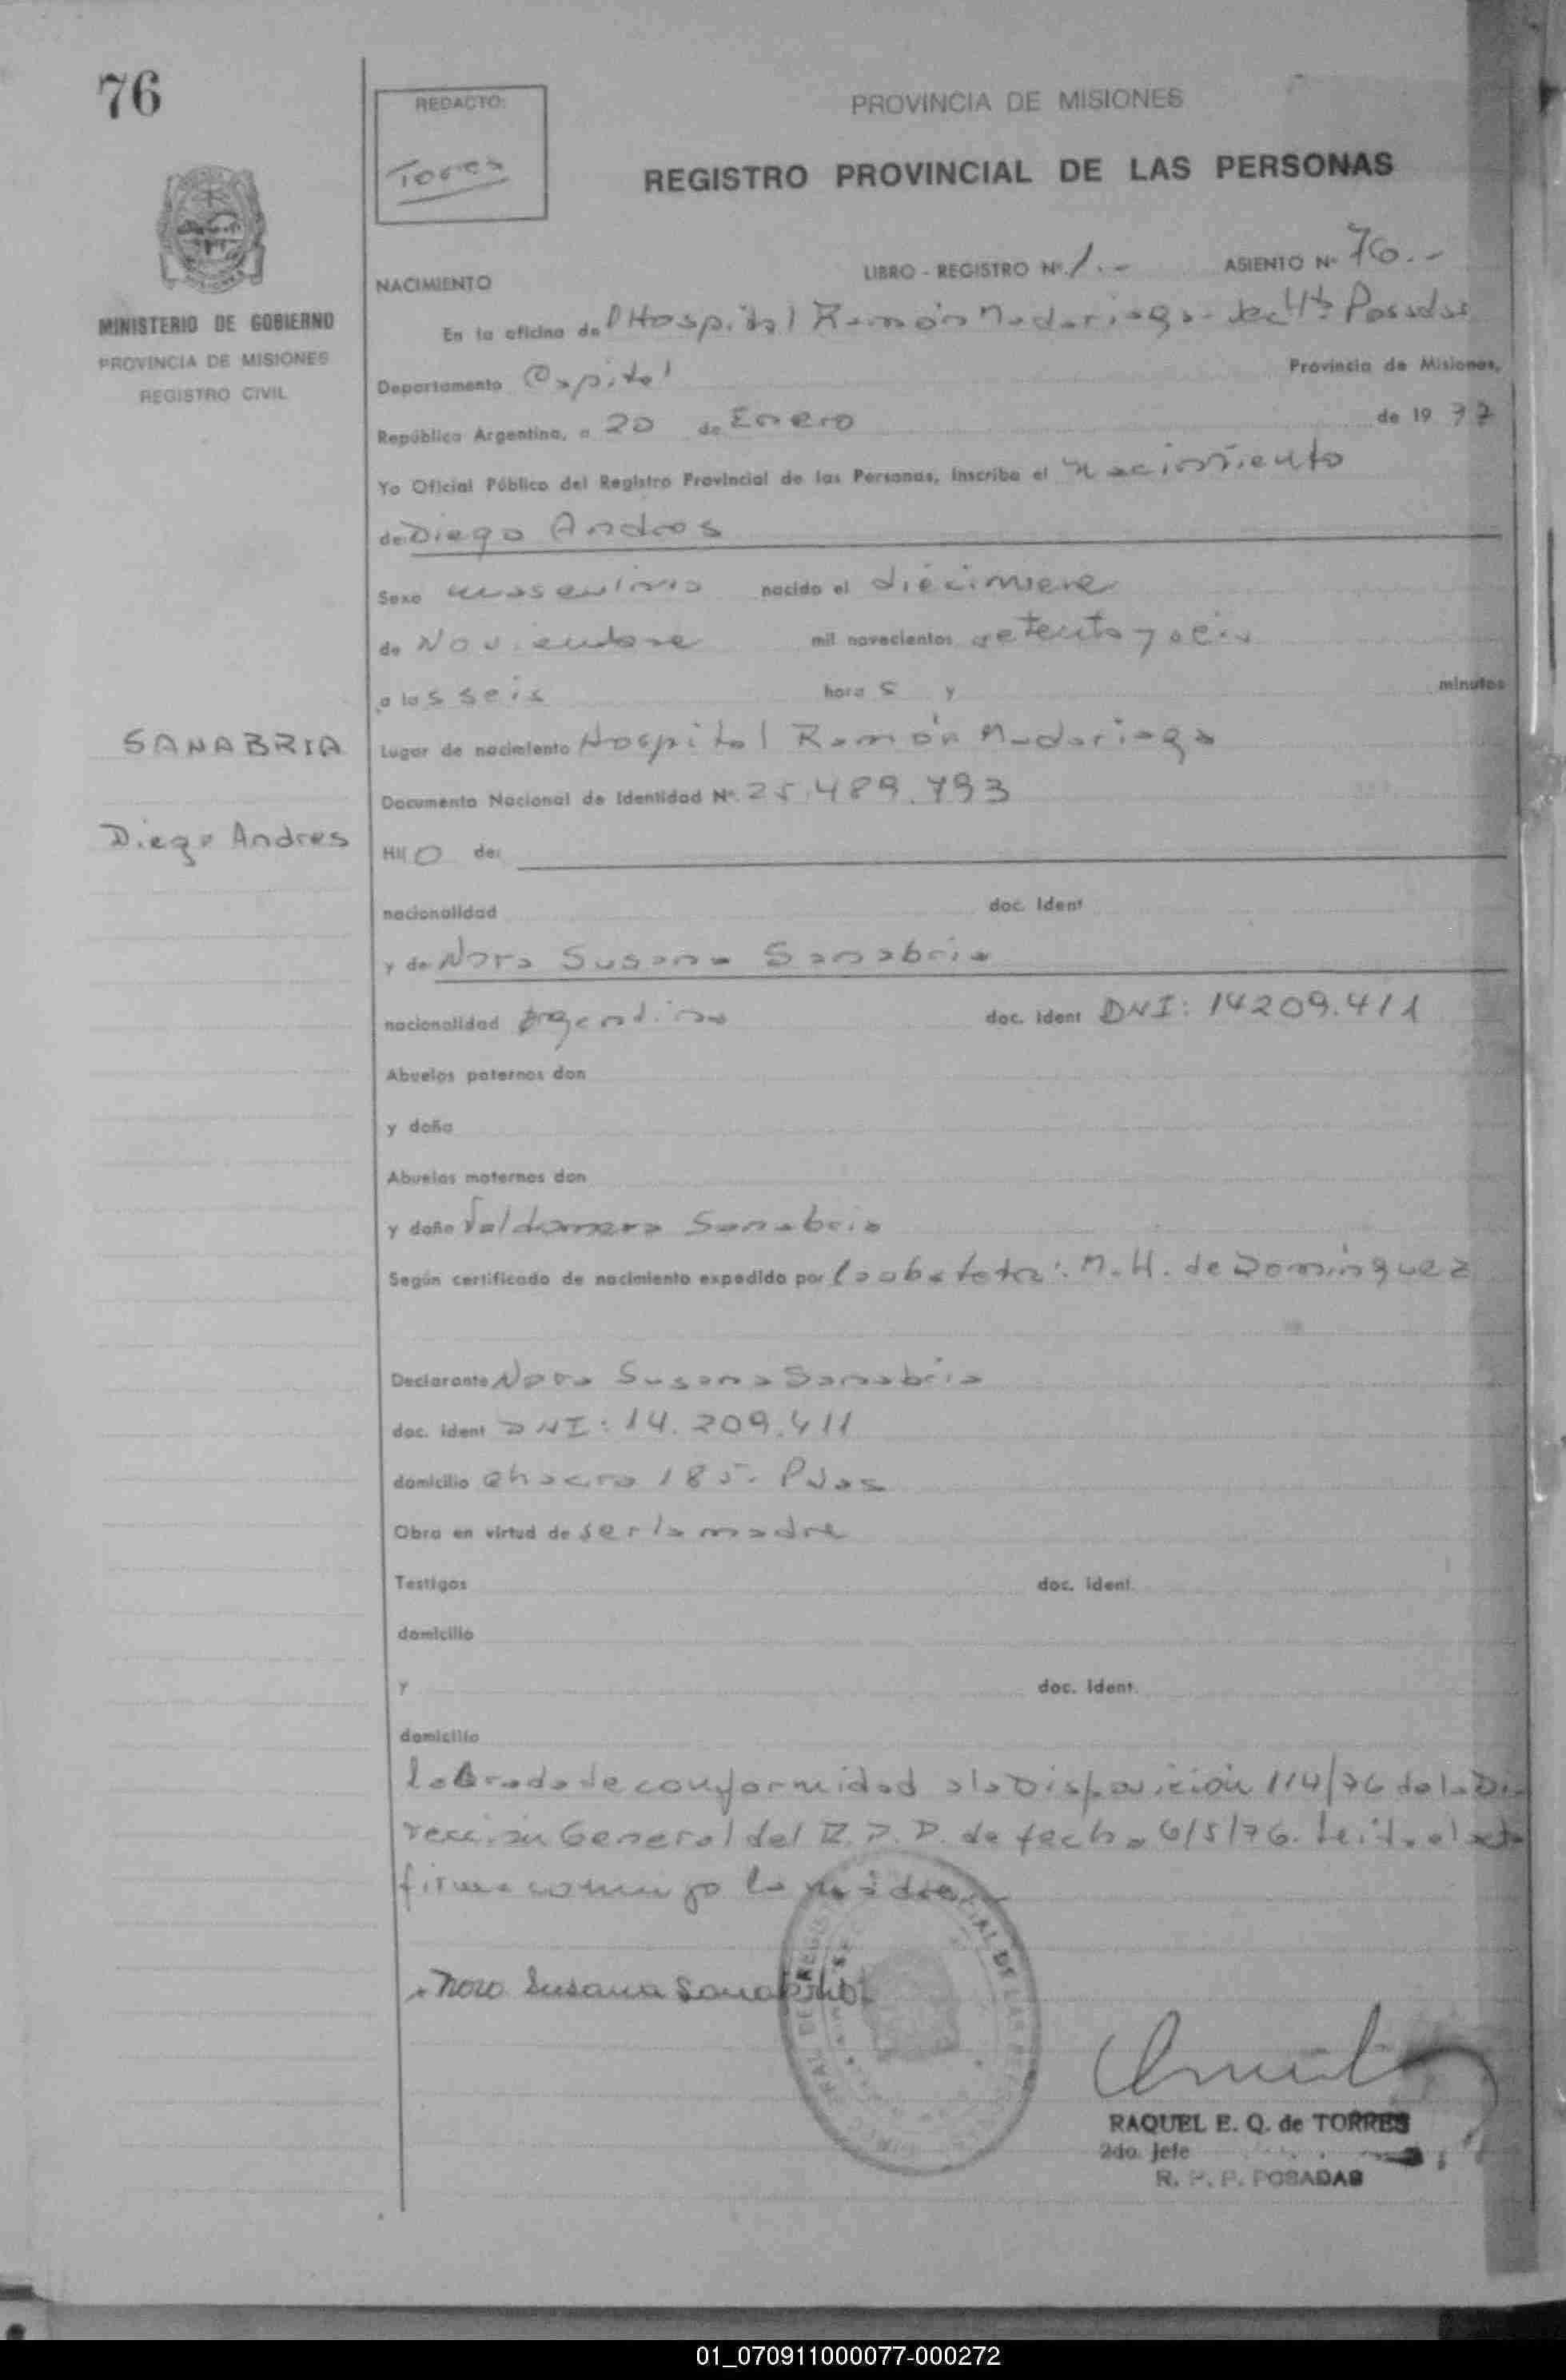 76
REDACTO:
Torres
PROVINCIA DE MISIONES
REGISTRO PROVINCIAL DE LAS PERSONAS
MINISTERIO DE GOBIERNO
PROVINCIA DE MISIONES
REGISTRO CIVIL
NACIMIENTO LIBRO - REGISTRO Nº. 1.- ASIENTO Nº 76.-
En la oficina del Hospital Ramón Madariaga - Sec 4ta Posadas
Departamento Capital Provincia de Misiones,
República Argentina, a 20 de Enero de 1977
Yo Oficial Público del Registro Provincial de las Personas, inscribo el nacimiento
de: Diego Andres
Sexo masculino nacido el diecinueve
de Noviembre mil novecientos setenta y seis
a las seis horas y minutos
SANABRIA
Lugar de nacimiento Hospital Ramón Madariaga
Documento Nacional de Identidad Nº. 25.489.793
Diego Andres
Hijo de:
nacionalidad doc. Ident
y de Nora Susana Sanabria
nacionalidad argentina doc. ident DNI: 14209.411
Abuelos paternos don
y doña
Abuelos maternos don
y doña Valdomera Sanabria
Según certificado de nacimiento expedido por la obstetra: M.H. de Dominguez
Declarante Nora Susana Sanabria
doc. ident DNI: 14.209.411
domicilio chacra 185. Pdas
Obra en virtud de ser la madre
Testigos doc. ident.
domicilio
y doc. Ident.
domicilio
labrada de conformidad a la Disposición 114/76 de la Di-
rección General del R.P.P. de fecha 6/5/76. Leida el acta
firma conmigo la madre
Nora Susana Sanabria
RAQUEL E. Q. de TORRES
2do. Jefe
R. P. P. POSADAS
01_070911000077-000272